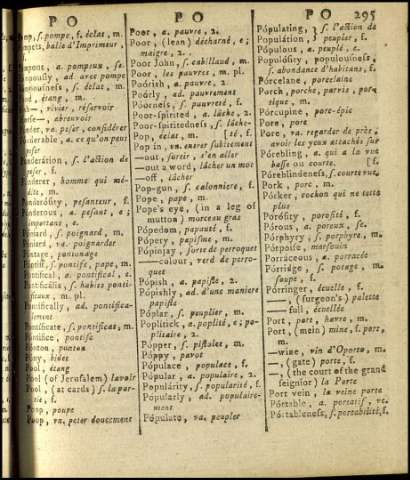 PO
PO
PO
295
s. pompe, f. éclat, m.
balie d'Imprimeur,
f.
a. pompeux, se
ad. avec pompe
s. éclat, m.
étang, m.
vivier, réservoir
abreuvoir
va. peser, considérer
a. ce qu'on peut
peser
s. l'action de
peser, f.
homme qui médite, m.
pesanteur, f.
a. pesant, e;
important, e.
s. poignard, m.
va. poignarder
pontonage
s. pontife, pape, m.
a. pontifical, e.
s. habits pontificaux, m. pl.
ad. pontificalement
s. pontificat, m.
pontife
ponton
Pony, bidet
Pool, étang
Pool (of Jerusalem) lavoir
Pool, (at cards) s. la partie,
poupe
va. peter doucement
Poor, a. pauvre, 2.
Poor, (lean) décharné, e;
maigre, 2.
Poor John, s. cabillaud, m.
Poor, les pauvres, m. pl.
Póorish, a. pauvre, 2.
Póorly, ad. pauvrement
Póorness, s. pauvreté, f.
Poor-spirited, a. lâche, 2.
Poor-spiritedness, s. lâcheté, f.
Pop, éclat, m.
Pop in, vn. entrer subitement
—out, sortir, s'en aller
—out a word, lâcher un mot
—off, lâcher
Pop-gun, s. calonniere, f.
Pope, pape, m.
Pope's eye, (in a leg of
mutton) morceau gras
Pópedom, papauté, f.
Pópery, papisme, m.
Pópinjay, sorte de perroquet
—colour, verd de perroquet
Pópish, a. papiste, 2.
Pópishly, ad. d'une maniere
papiste
Póplar, s. peuplier, m.
Póplitick, a. poplité, e; poplitaire, 2.
Pópper, s. pistolet, m.
Póppy, pavot
Pópulace, populace, f.
Pópular, a. populaire, 2.
Populárity, s. popularité, f.
Pópularly, ad. populairement
Pópulate, va. peupler
Pópulating, } s. l'action de
Populátion, } peupler, f.
Pópulous, a. peuplé, e.
Populósity, populousness,
s. abondance d'habitans, f.
Pórcelane, porcelaine
Porch, porche, parvis, portique, m.
Pórcupine, porc-épic
Pore, pore
Pore, va. regarder de près,
avoir les yeux attachés sur
Pórebling, a. qui a la vue
basse ou courte.
Póreblindeness, s. courte vue, f.
Pork, porc, m.
Pórker, cochon qui ne tette
plus
Porósity, porosité, f.
Pórous, a. poreux, se.
Pórphyry, s. porphyre, m.
Pórpoise, marsouin
Porráceous, a. porracée
Pórridge, s. potage, m.
soupe, f.
Pórringer, écuelle, f.
—, (surgeon's) palette
—full, écuellée
Port, port, havre, m.
Port, (mein) mine, f. port,
m.
—wine, vin d'Oporto, m.
—, (gate) porte, f.
—, (the court of the grand
seignior) la Porte
Port vein, la veine porte
Pórtable, a. portatif, ve.
Pórtableness, s. portabilité, f.